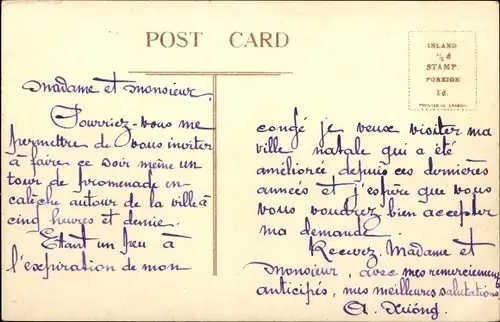 POST CARD
INLAND
½d
STAMP.
FOREIGN
1d.
PRINTED IN SAXONY.
Madame et Monsieur,
Pourriez-vous me
permettre de vous inviter
à faire ce soir même un
tour de promenade en
calèche autour de la ville à
cinq heures et demie.
Etant un peu à
l'expiration de mon
congé je veux visiter ma
ville natale qui a été
améliorée depuis ces dernières
années et j'espère que vous
vous voudrez bien accepter
ma demande.
Recevez Madame et
Monsieur, avec mes remerciements
anticipés, mes meilleures salutations